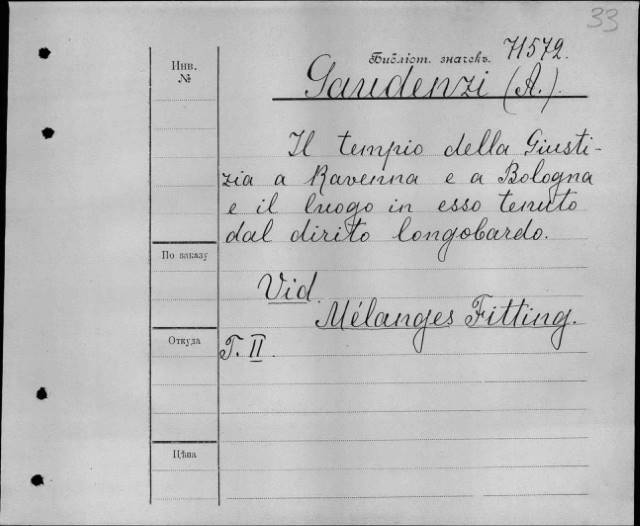 33
Инв.
№
Библіот. значекъ. 71572.
Gaudenzi (A.).
Il tempio della Giusti-
zia a Ravenna e a Bologna
e il luogo in esso tenuto
dal dirito longobardo.
По заказу
Vid.
Mélanges Fitting.
Откуда
T. II.
Цѣна